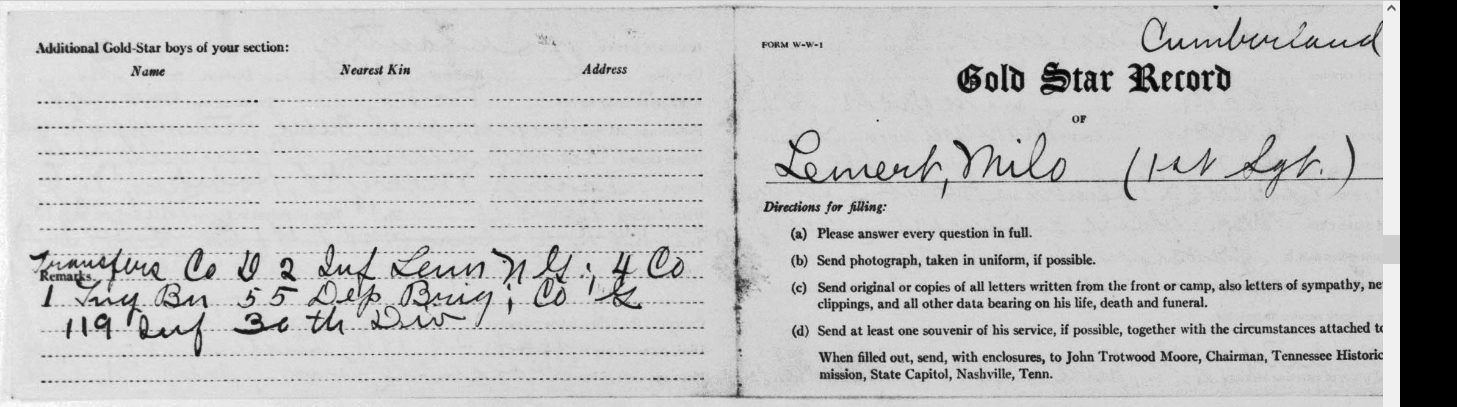 Additional Gold-Star boys of your section:
Name Nearest Kin Address
Transfers Co D 2 Inf Tenn N G; 4 Co
Remarks
1 Tng Bn 55 Dep Brig; Co G
119 Inf 30th Div
FORM W-W-1
Cumberland
Gold Star Record
OF
Lemert, Milo (1st Sgt.)
Directions for filling:
(a) Please answer every question in full.
(b) Send photograph, taken in uniform, if possible.
(c) Send original or copies of all letters written from the front or camp, also letters of sympathy, ne
clippings, and all other data bearing on his life, death and funeral.
(d) Send at least one souvenir of his service, if possible, together with the circumstances attached to
When filled out, send, with enclosures, to John Trotwood Moore, Chairman, Tennessee Historic
mission, State Capitol, Nashville, Tenn.